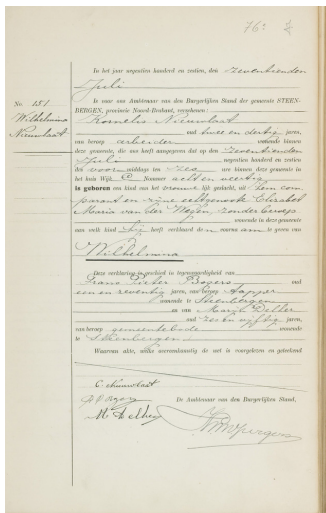 76
In het jaar negentien honderd en zestien, den zeventienden
Juli
No. 151
Wilhelmina
Nieuwlaat
is voor ons Ambtenaar van den Burgerlijken Stand der gemeente STEEN-
BERGEN, provincie Noord-Brabant, verschenen:
Kornelis Nieuwlaat
oud twee en dertig jaren,
van beroep arbeider wonende binnen
deze gemeente, die ons heeft aangegeven dat op den zeventienden
Juli negentien honderd en zestien
des voormiddags ten zes ure binnen deze gemeente in
het huis Wijk C Nommer acht en veertig
is geboren een kind van het vrouwelijk geslacht, uit hem com
parant en zijne echtgenoote Elizabet
Maria van der Wegen, zonder beroep
wonende in deze gemeente
aan welk kind hij heeft verklaard den voornaam te geven van
Wilhelmina
Deze verklaring is geschied in tegenwoordigheid van
Frans Pieter Bogers oud
een en zeventig jaren, van beroep
wonende te Steenbergen
en van Marijn Delhez
oud zes en vijftig jaren,
van beroep gemeentebode wonende
te Steenbergen
Waarvan akte, welke overeenkomstig de wet is voorgelezen en geteekend
C. Nieuwlaat
De Ambtenaar van den Burgerlijken Stand,
M Delhez